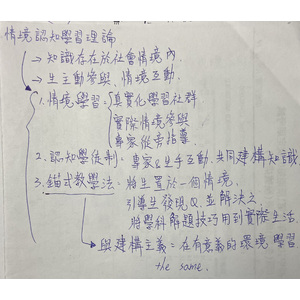 情境認知學習理論
→知識存在於社會情境內.
→生主動參與、情境互動.
1.情境學習=真實化學習社群
實際情境參與
專家從旁指導
2.認知學徒制=專家&生手互動.共同建構知識
3.錨式教學法=將生置於一個情境,
引導生發現Q.並解決之.
將學科解題技巧用到實際生活.
與建構主義=在有意義的環境學習
the same.